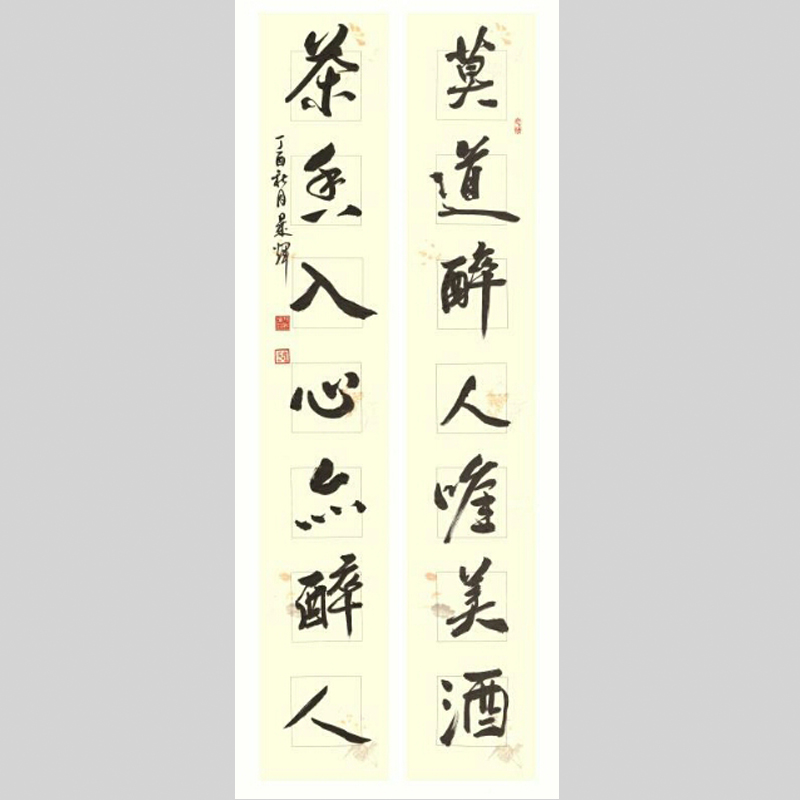 莫道醉人唯美酒
茶香入心亦醉人
丁酉秋月景辉